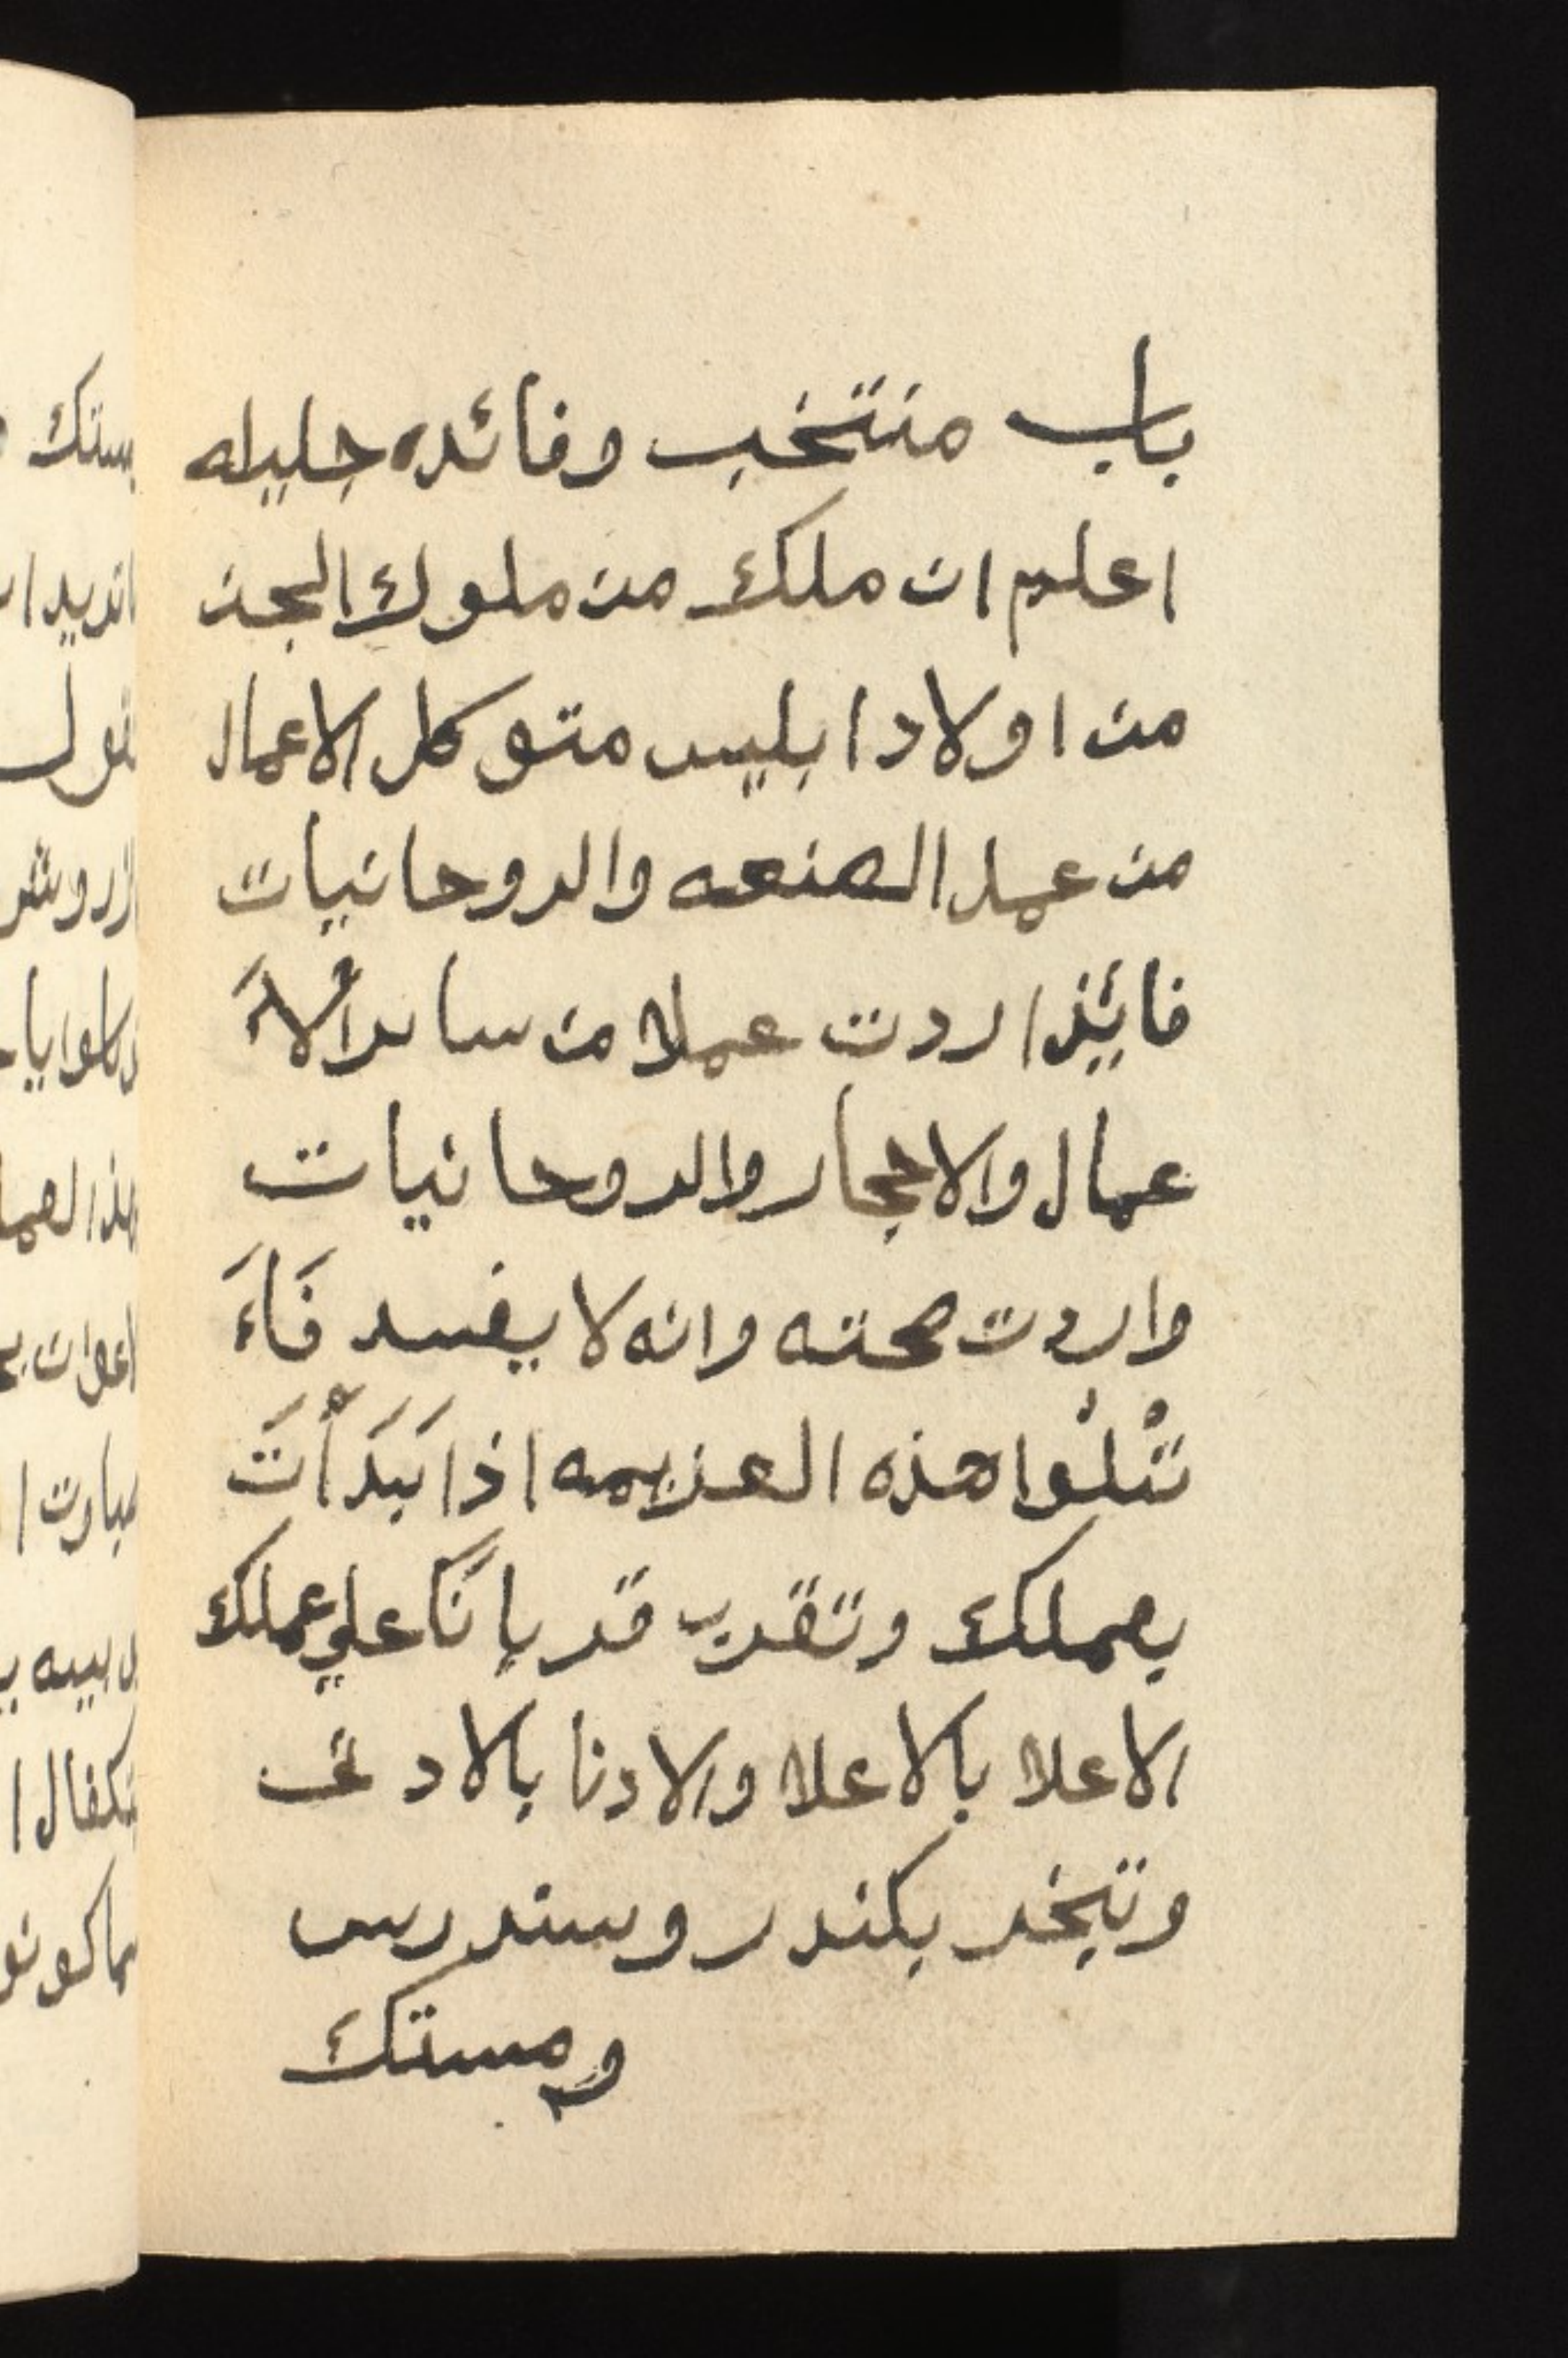 باب منتخب وفائده جليله
اعلم ان ملك من ملوك الجن
من اولاد ابليس متوكل الاعمال
من عمل الصنعه والروحانيات
فائذا اردت عملا من ساير الأَ
عمال والاحجار والروحانيات
واردت صحته وانه لا يفسد فَاءَ
تْلُوا هذه العزيمه اذا بَدَأْتَ
بعملك وتقرب قربانًا علي عملك
الاعلا بالاعلا والادنا بالادنى
وتبخر بكندر وسندرس
ومستك